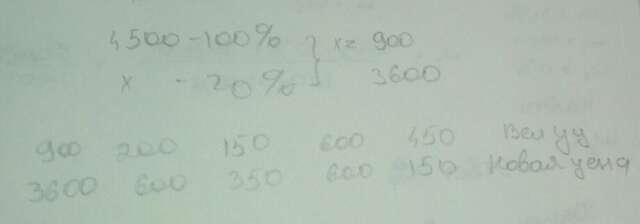 4500 - 100% } x = 900
x - 20% } 3600
900 200 150 600 450 Вел уу
3600 600 350 600 150 Новая цена